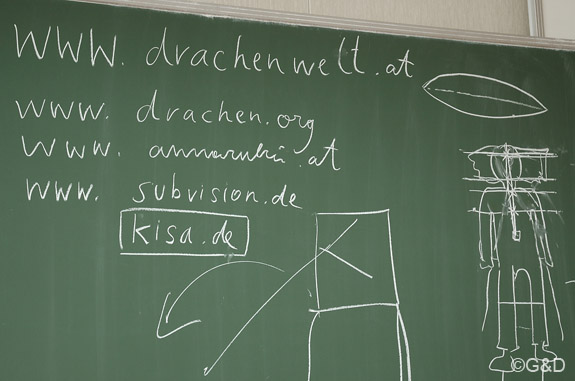 www. drachenwelt.at
www. drachen.org
www.
www. subvision.de
kisa.de
©G&D